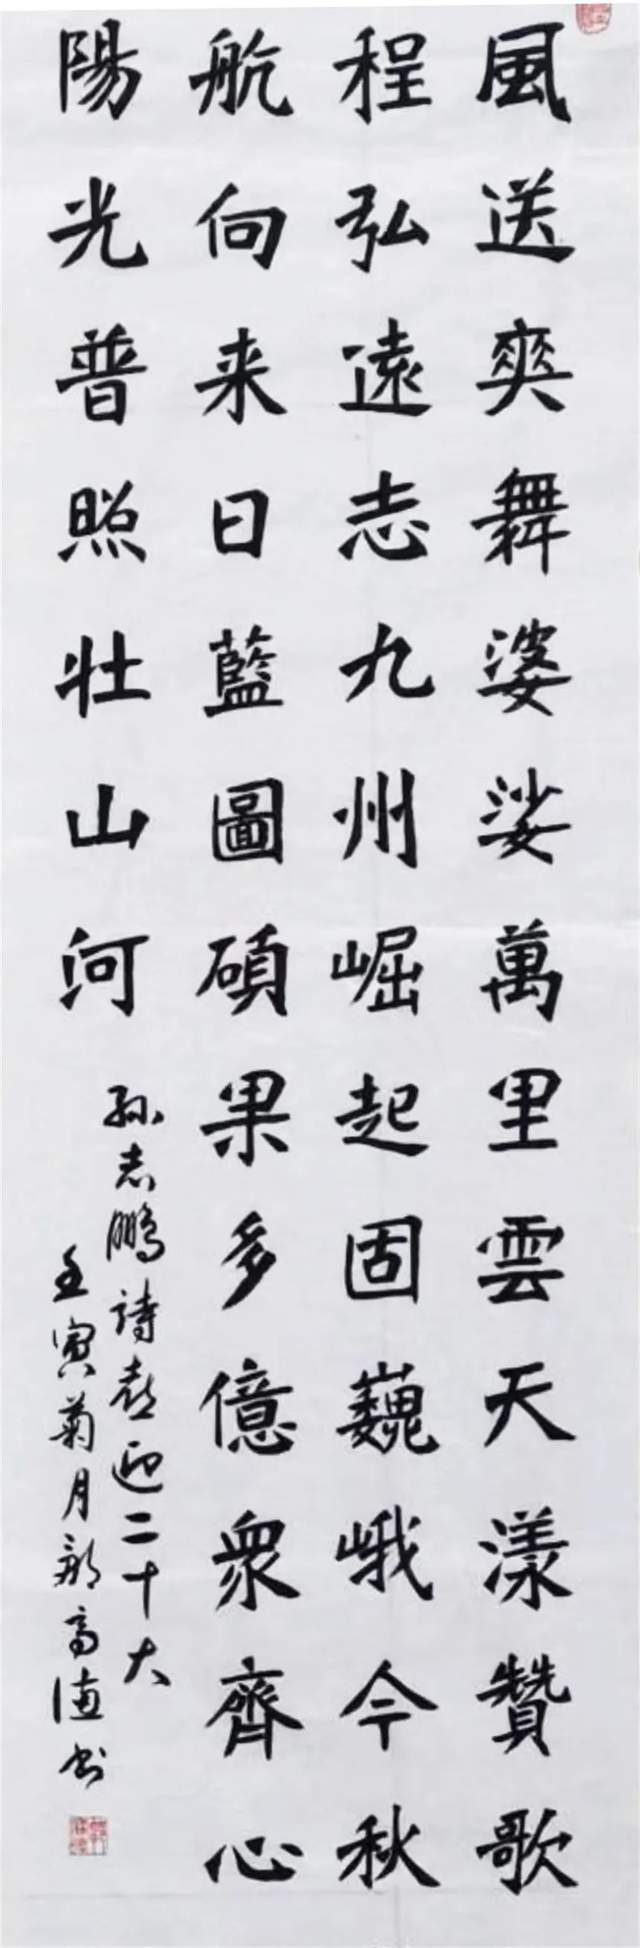 風送爽舞婆娑萬里雲天漾贊歌
程弘遠志九州崛起固巍峨今秋
航向来日藍圖碩果多億衆齊心
陽光普照壯山河
孫志鵬詩喜迎二十大
壬寅菊月高书